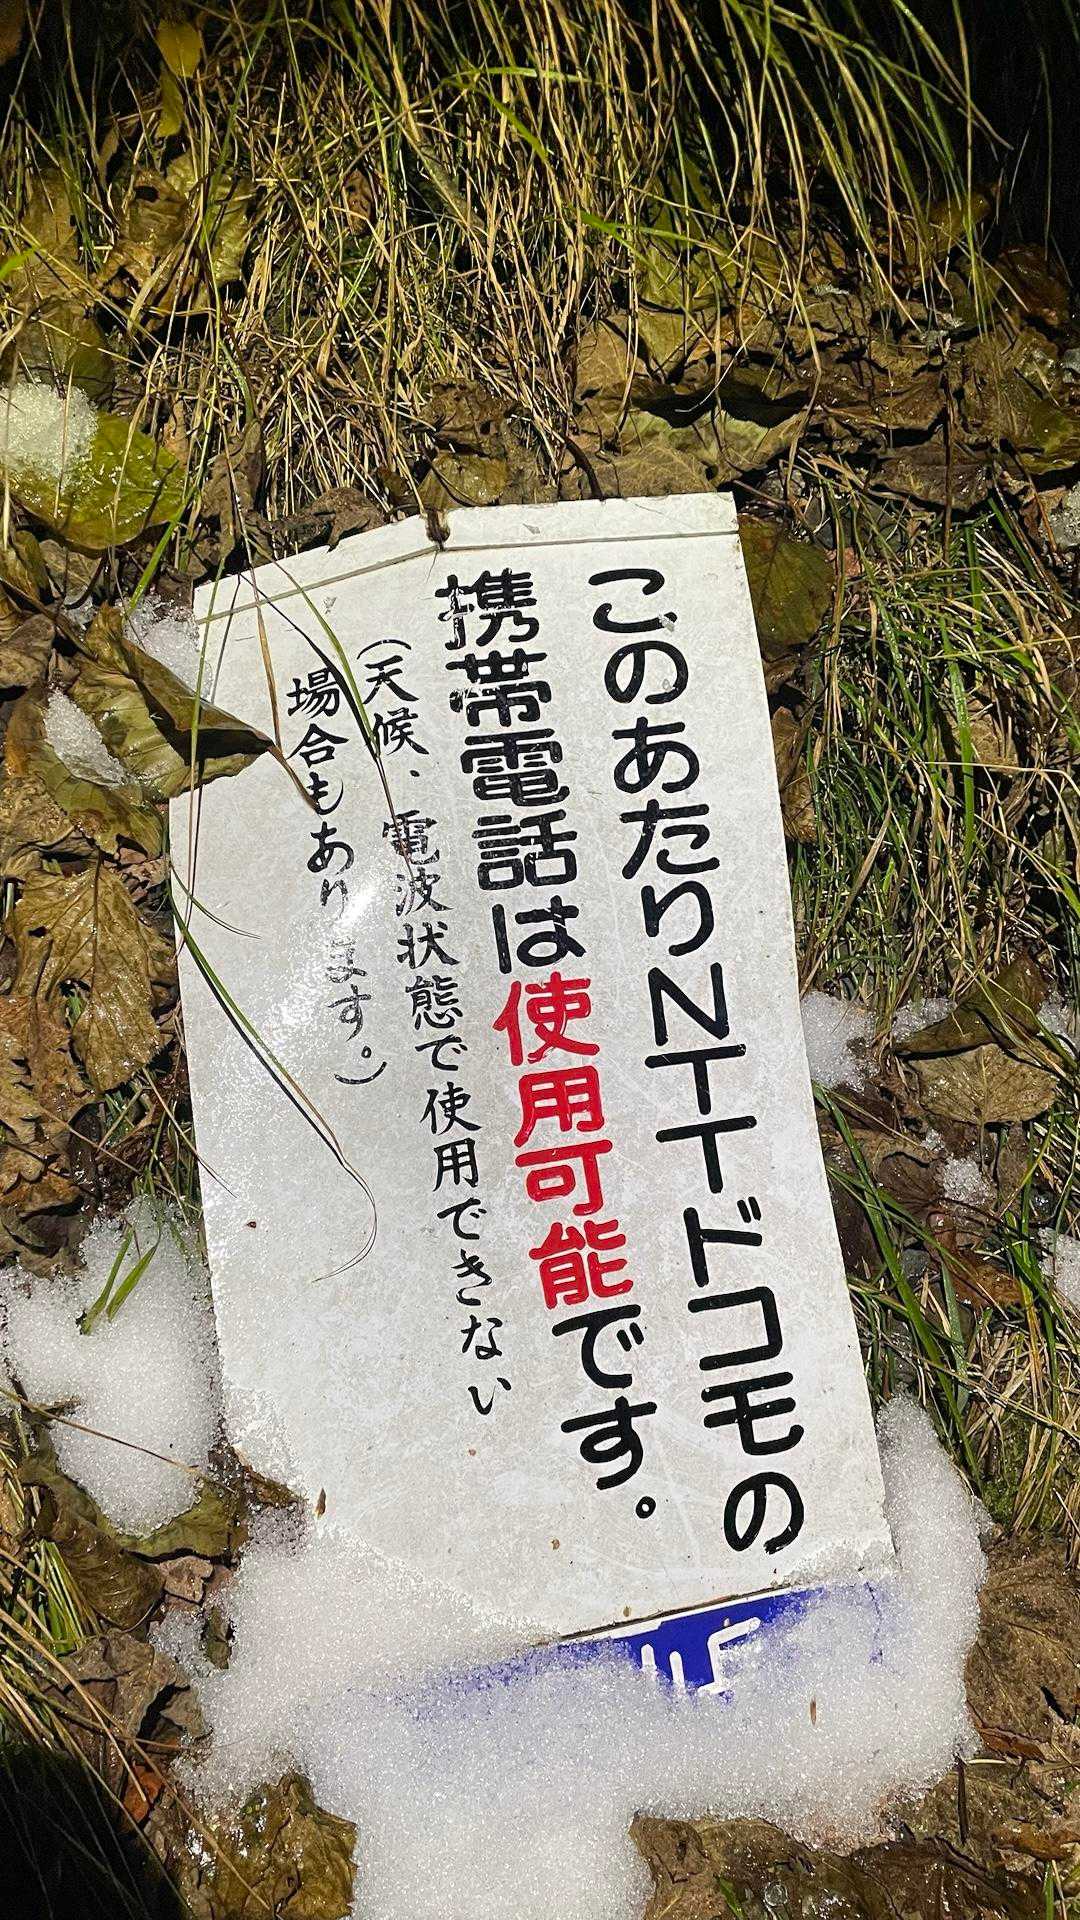 このあたりNTTドコモの
携帯電話は使用可能です。
(天候、電波状態で使用できない
場合もあります。)